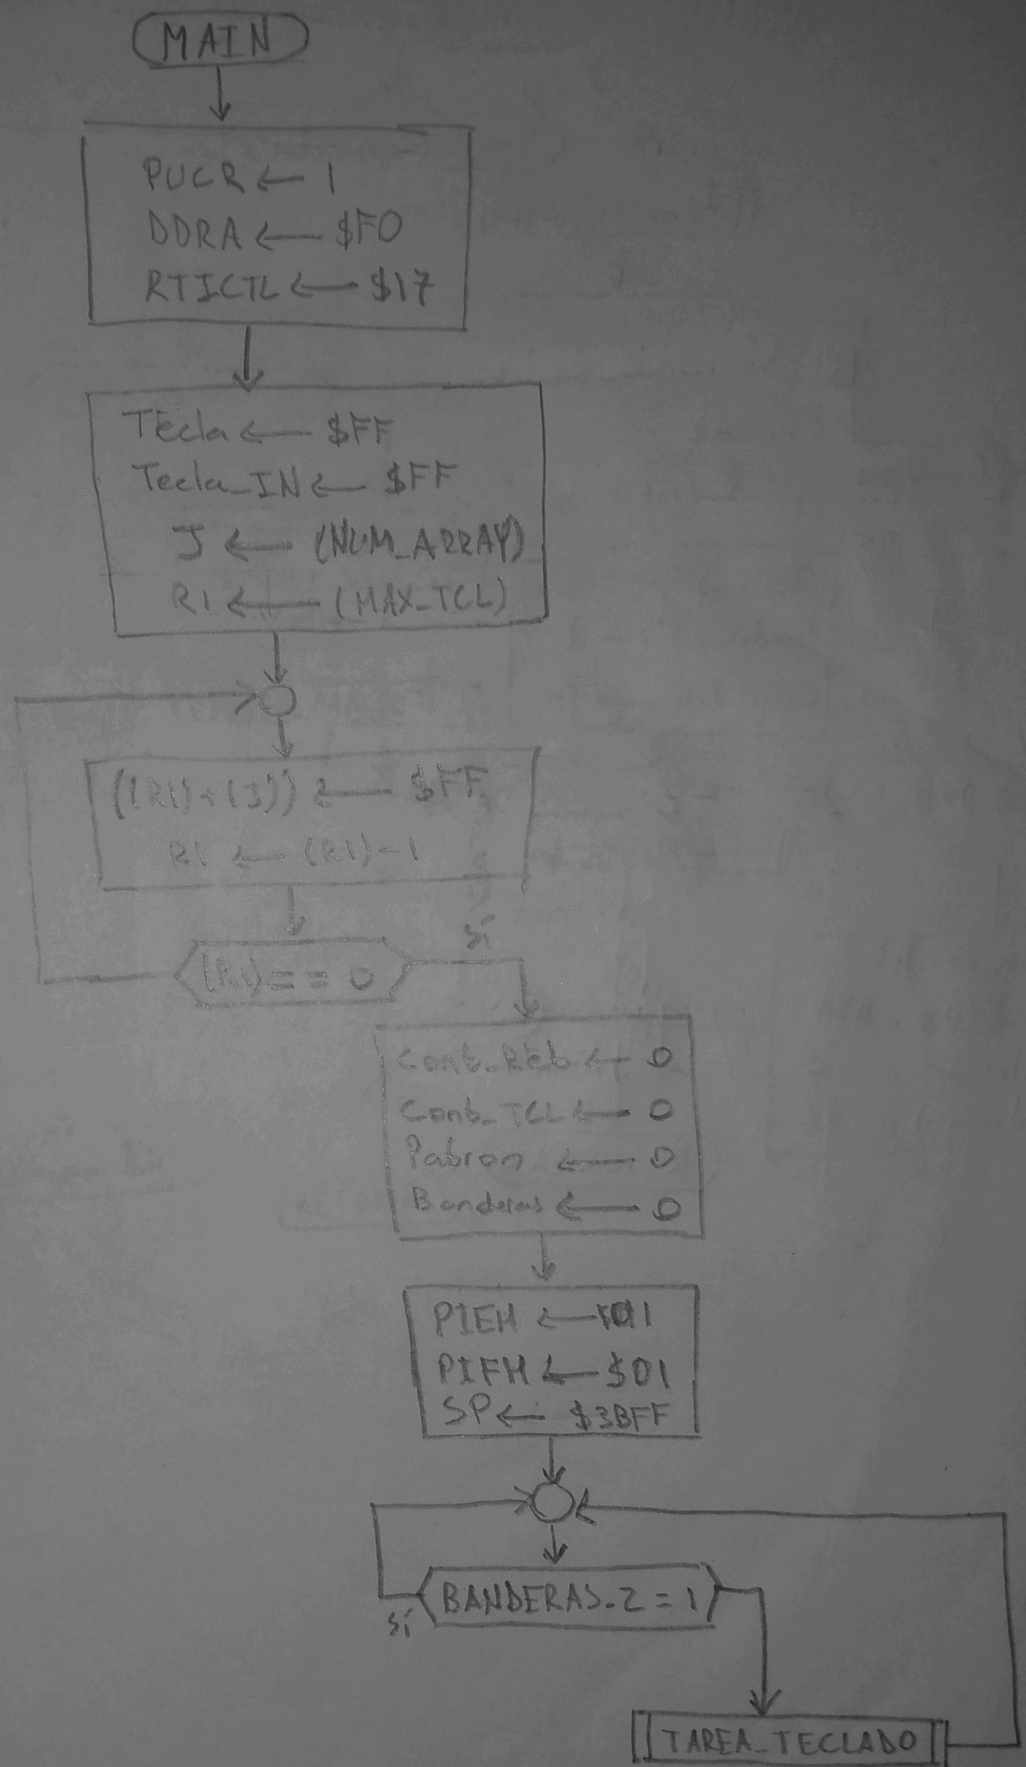 MAIN
PUCR ← 1
DDRA ← $F0
RTICTL ← $17
Tecla ← $FF
Tecla_IN ← $FF
J ← (NUM_ARRAY)
R1 ← (MAX_TCL)
((R1)+(J)) ← $FF
R1 ← (R1)-1
sí
(R1) == 0
Cont_Reb ← 0
Cont_TCL ← 0
Patron ← 0
Banderas ← 0
PIEH ←
PIFH ← $01
SP ← $3BFF
BANDERAS.2 = 1
sí
TAREA_TECLADO